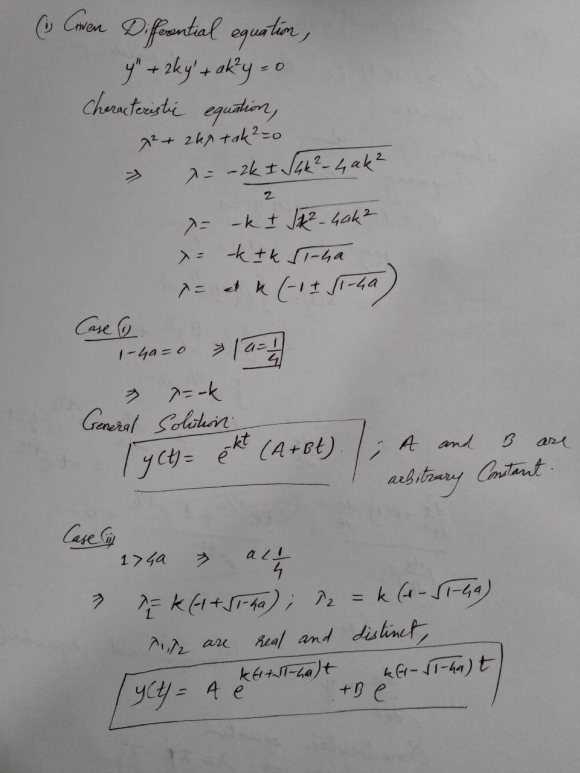 (i) Given Differential equation,
y'' + 2ky' + ak²y = 0
Characteristic equation,
λ² + 2kλ + ak² = 0
⇒ λ = -2k ± √4k² - 4ak² / 2
λ = -k ± √k² - 4ak²
λ = -k ± k √1-4a
λ = k (-1 ± √1-4a)
Case (i)
1-4a = 0 ⇒ a = 1/4
⇒ λ = -k
General Solution.
y(t) = e^-kt (A + Bt) ; A and B are
arbitrary Constant.
Case (ii)
1 > 4a ⇒ a < 1/4
⇒ λ₁ = k (-1 + √1-4a) ; λ₂ = k (-1 - √1-4a)
λ₁, λ₂ are real and distinct,
y(t) = A e^k(-1+√1-4a)t + B e^k(-1-√1-4a)t